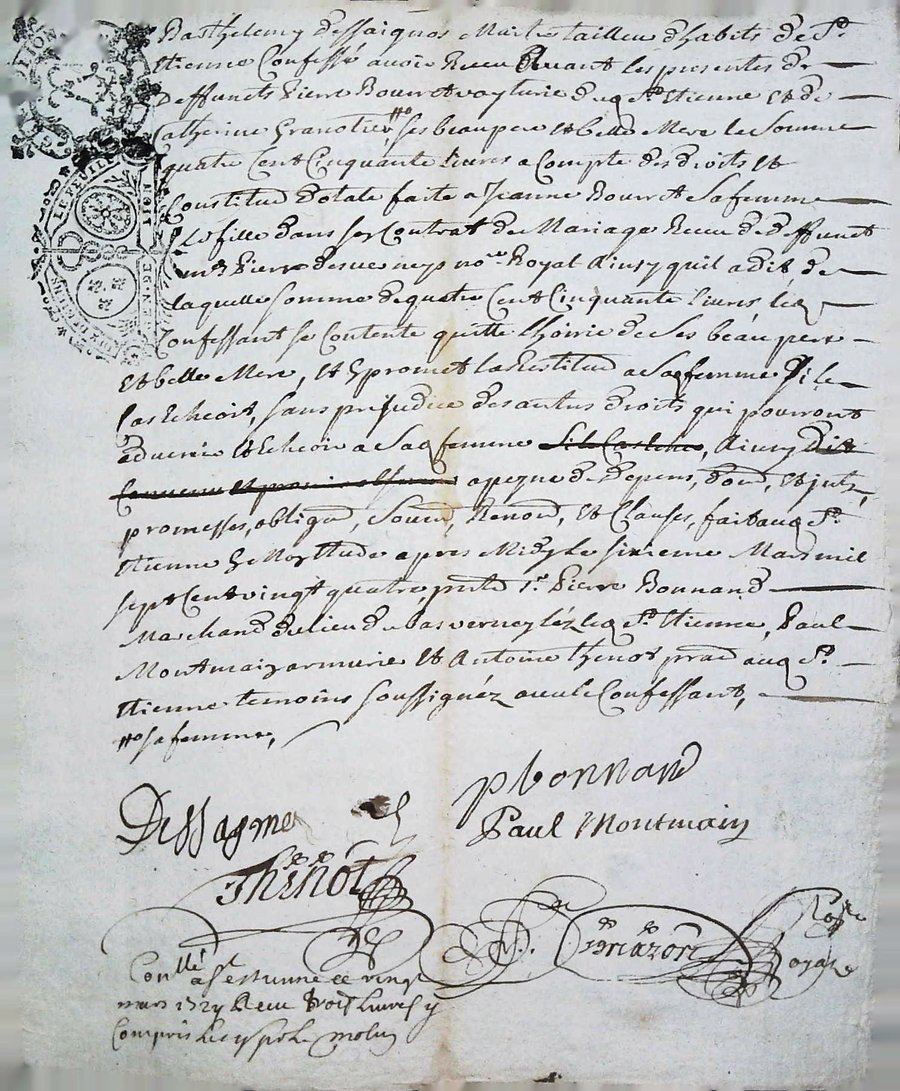 Barthelemy dessaignes Maitre tailleur dhabits de St
Etienne Confesse avoir Receu Avant les presentes de
deffuncts Pierre Bourret voyturie dud St Etienne et de
Catherine Granotier, sa femme, ses beau pere et belle Mere la Somme
quatre Cent Cinquante livres a Compte des droits et
Constitud dotale faite a Jeanne Bourret Sa femme
leur fille dans son Contrat de Mariage Receu de deffunct
me Pierre no.re Royal Ainsy quil a dit de
laquelle somme de quatre Cent Cinquante livres led
Confessant se Contente quitte lhoirie de Ses beau pere
et belle Mere, et promet la Restitud a Sad femme Si le
Cas Echeoit, sans prejudice des autres droits qui pourront
advenir et Echeoir a Sad femme Ainsy
a peyne de depens, et
promesses, obligaon, Renon, et Clauses, fait aud St
Etienne En Mon Etude apres Midy Le sixieme Mars mil
sept Cent vingt quatre, pnts Sr Pierre Bonnand
Marchand du lieu du bas verney lez led St Etienne, Paul
Montmain armurie et Antoine thenot prad aud St
Etienne temoins soussignéz avec le Confessant,
sa femme,
Dessagne
pbonnand
Paul Montmain
Thenot
Royal
Conllé a St estienne ce vingt
mars 1724 Receu trois livres y
Compris
LE FEUILLE
GEN. DE LION